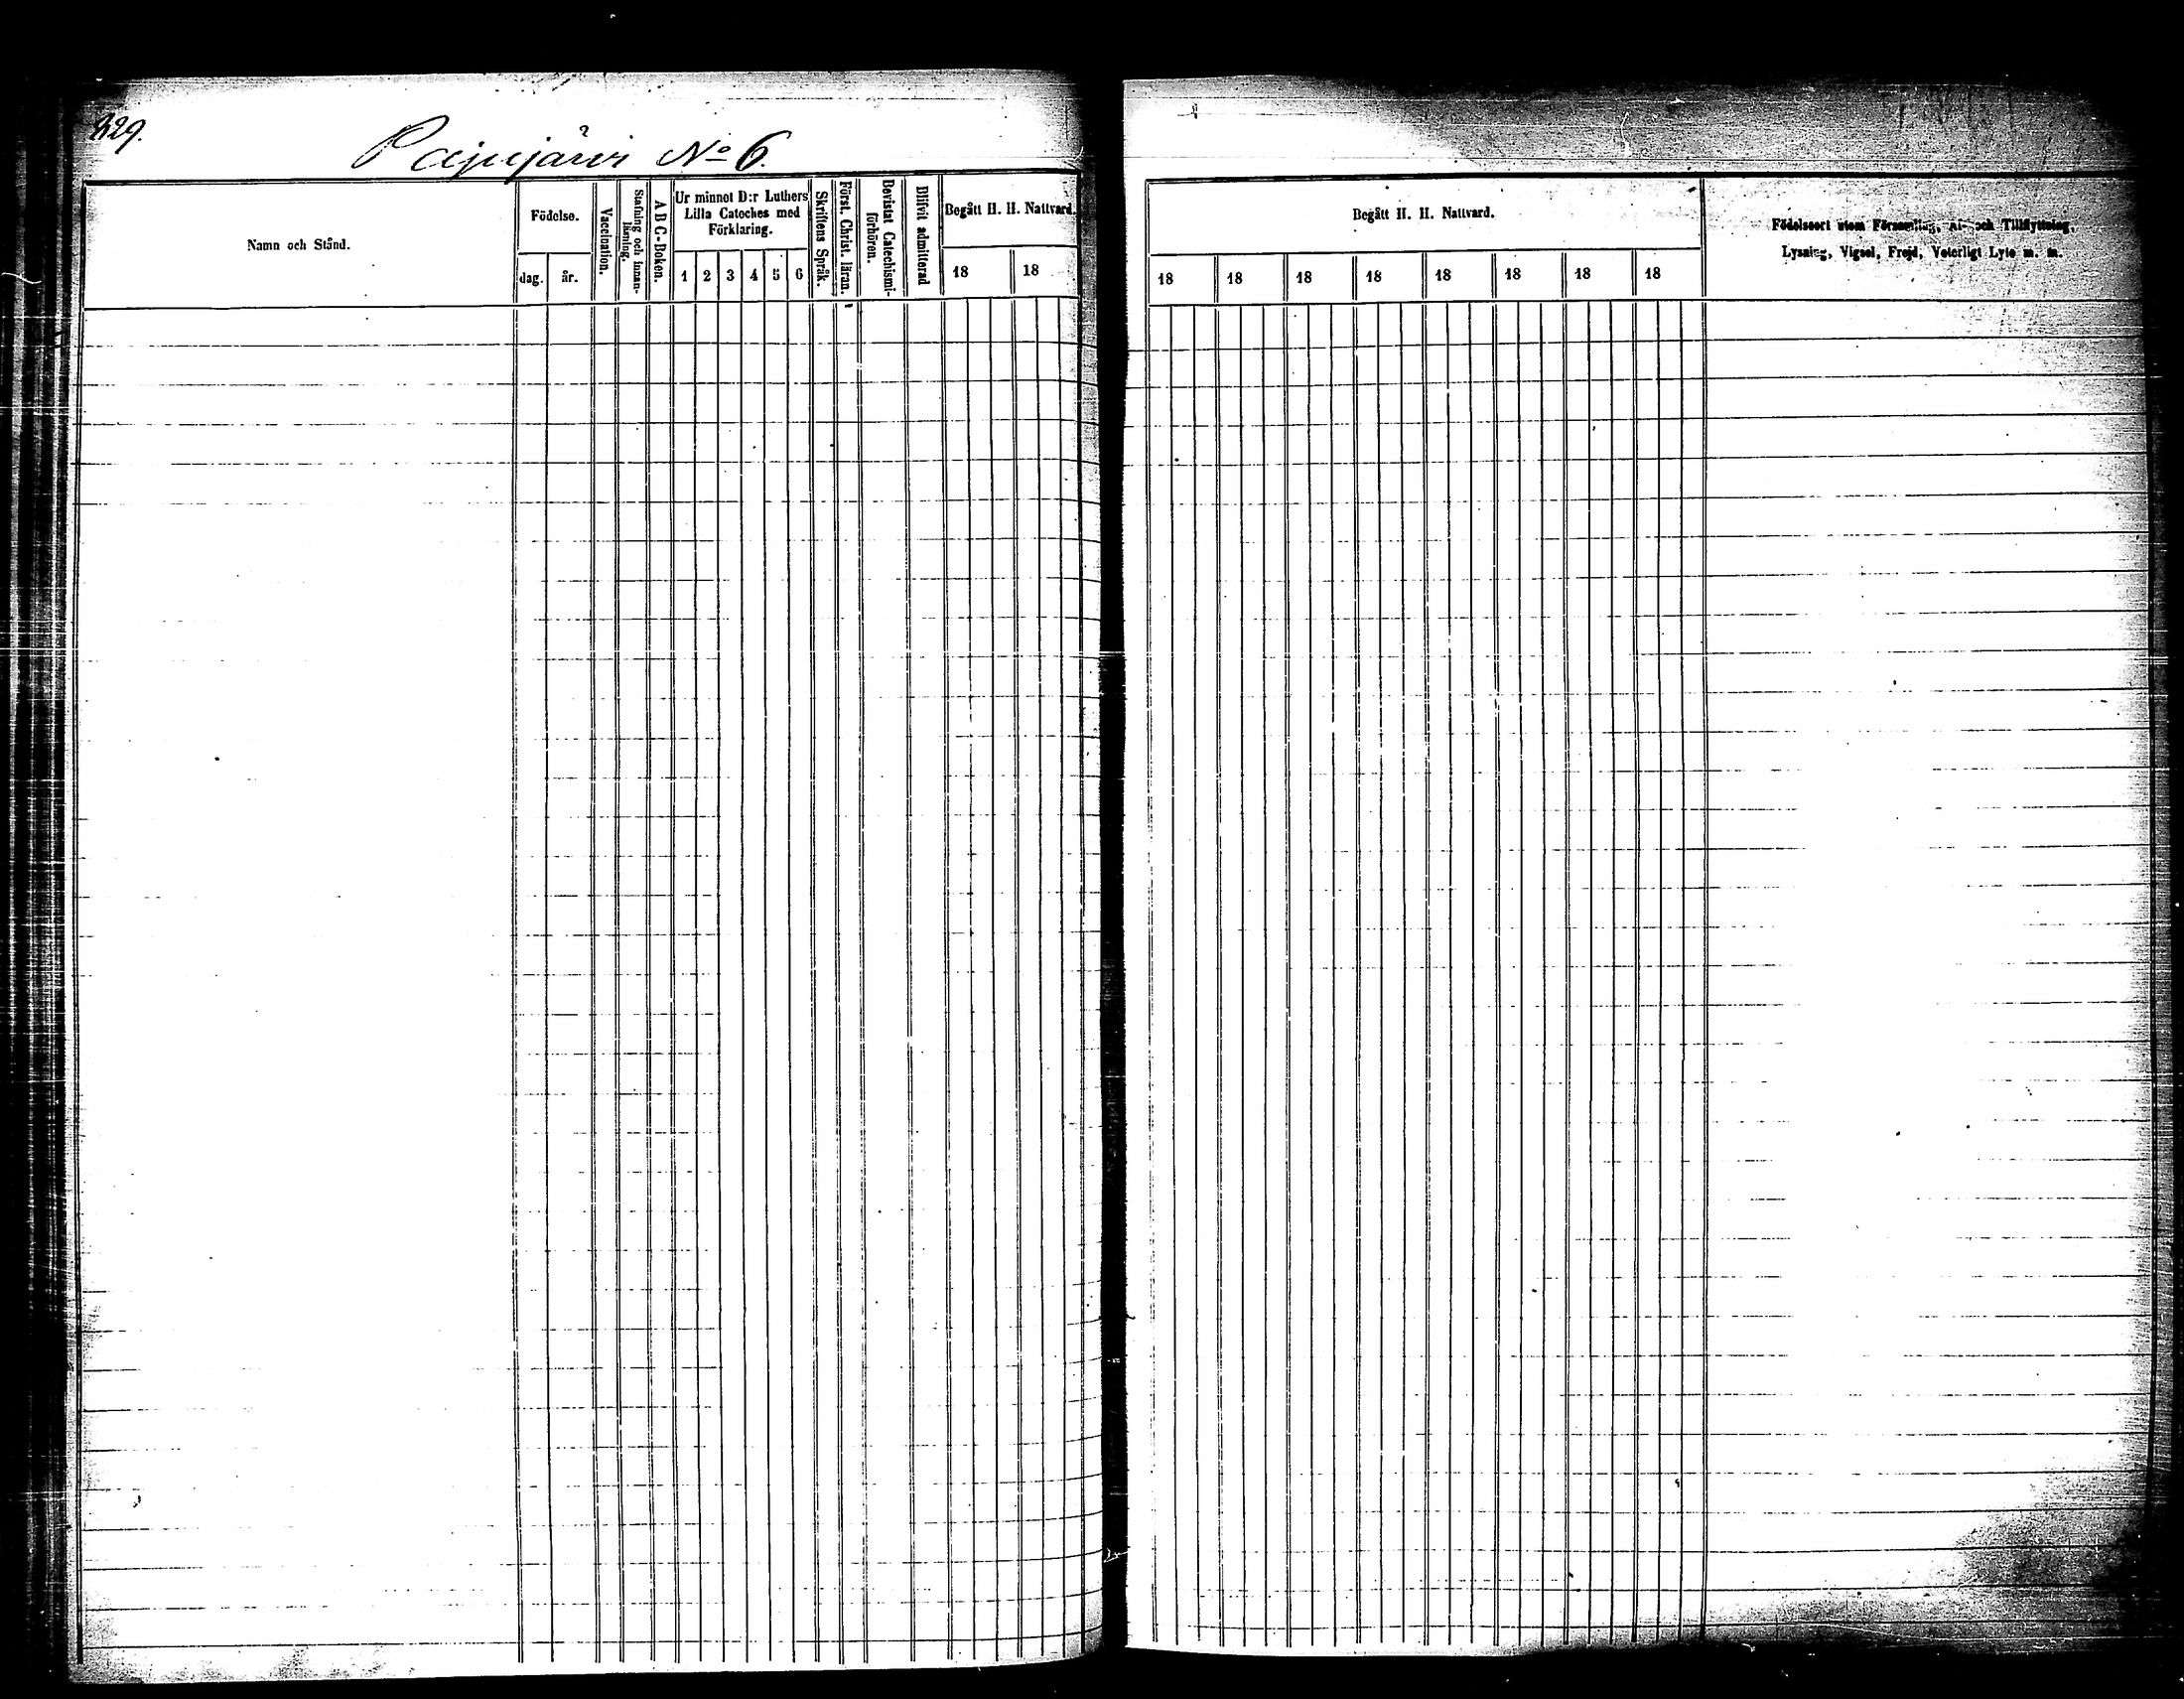 329.
Pajujärvi No 6.
Namn och Stånd.
Födelse.
dag.
år.
Vaccination.
Stafning och innanläsning.
A B C-Boken.
Ur minnet D:r Luthers
Lilla Cateches med
Förklaring.
1 2 3 4 5 6
Skriftens Språk.
Först. Christ. läran.
Bevistat Catechismi-
förhören.
Blifvit admitterad
Begått H. H. Nattvard.
18 18
Begått H. H. Nattvard.
18 18 18 18 18 18 18 18
Födelseort utom Församling, Af- och Tillflyttning,
Lysning, Vigsel, Frejd, Veterligt Lyte m. m.